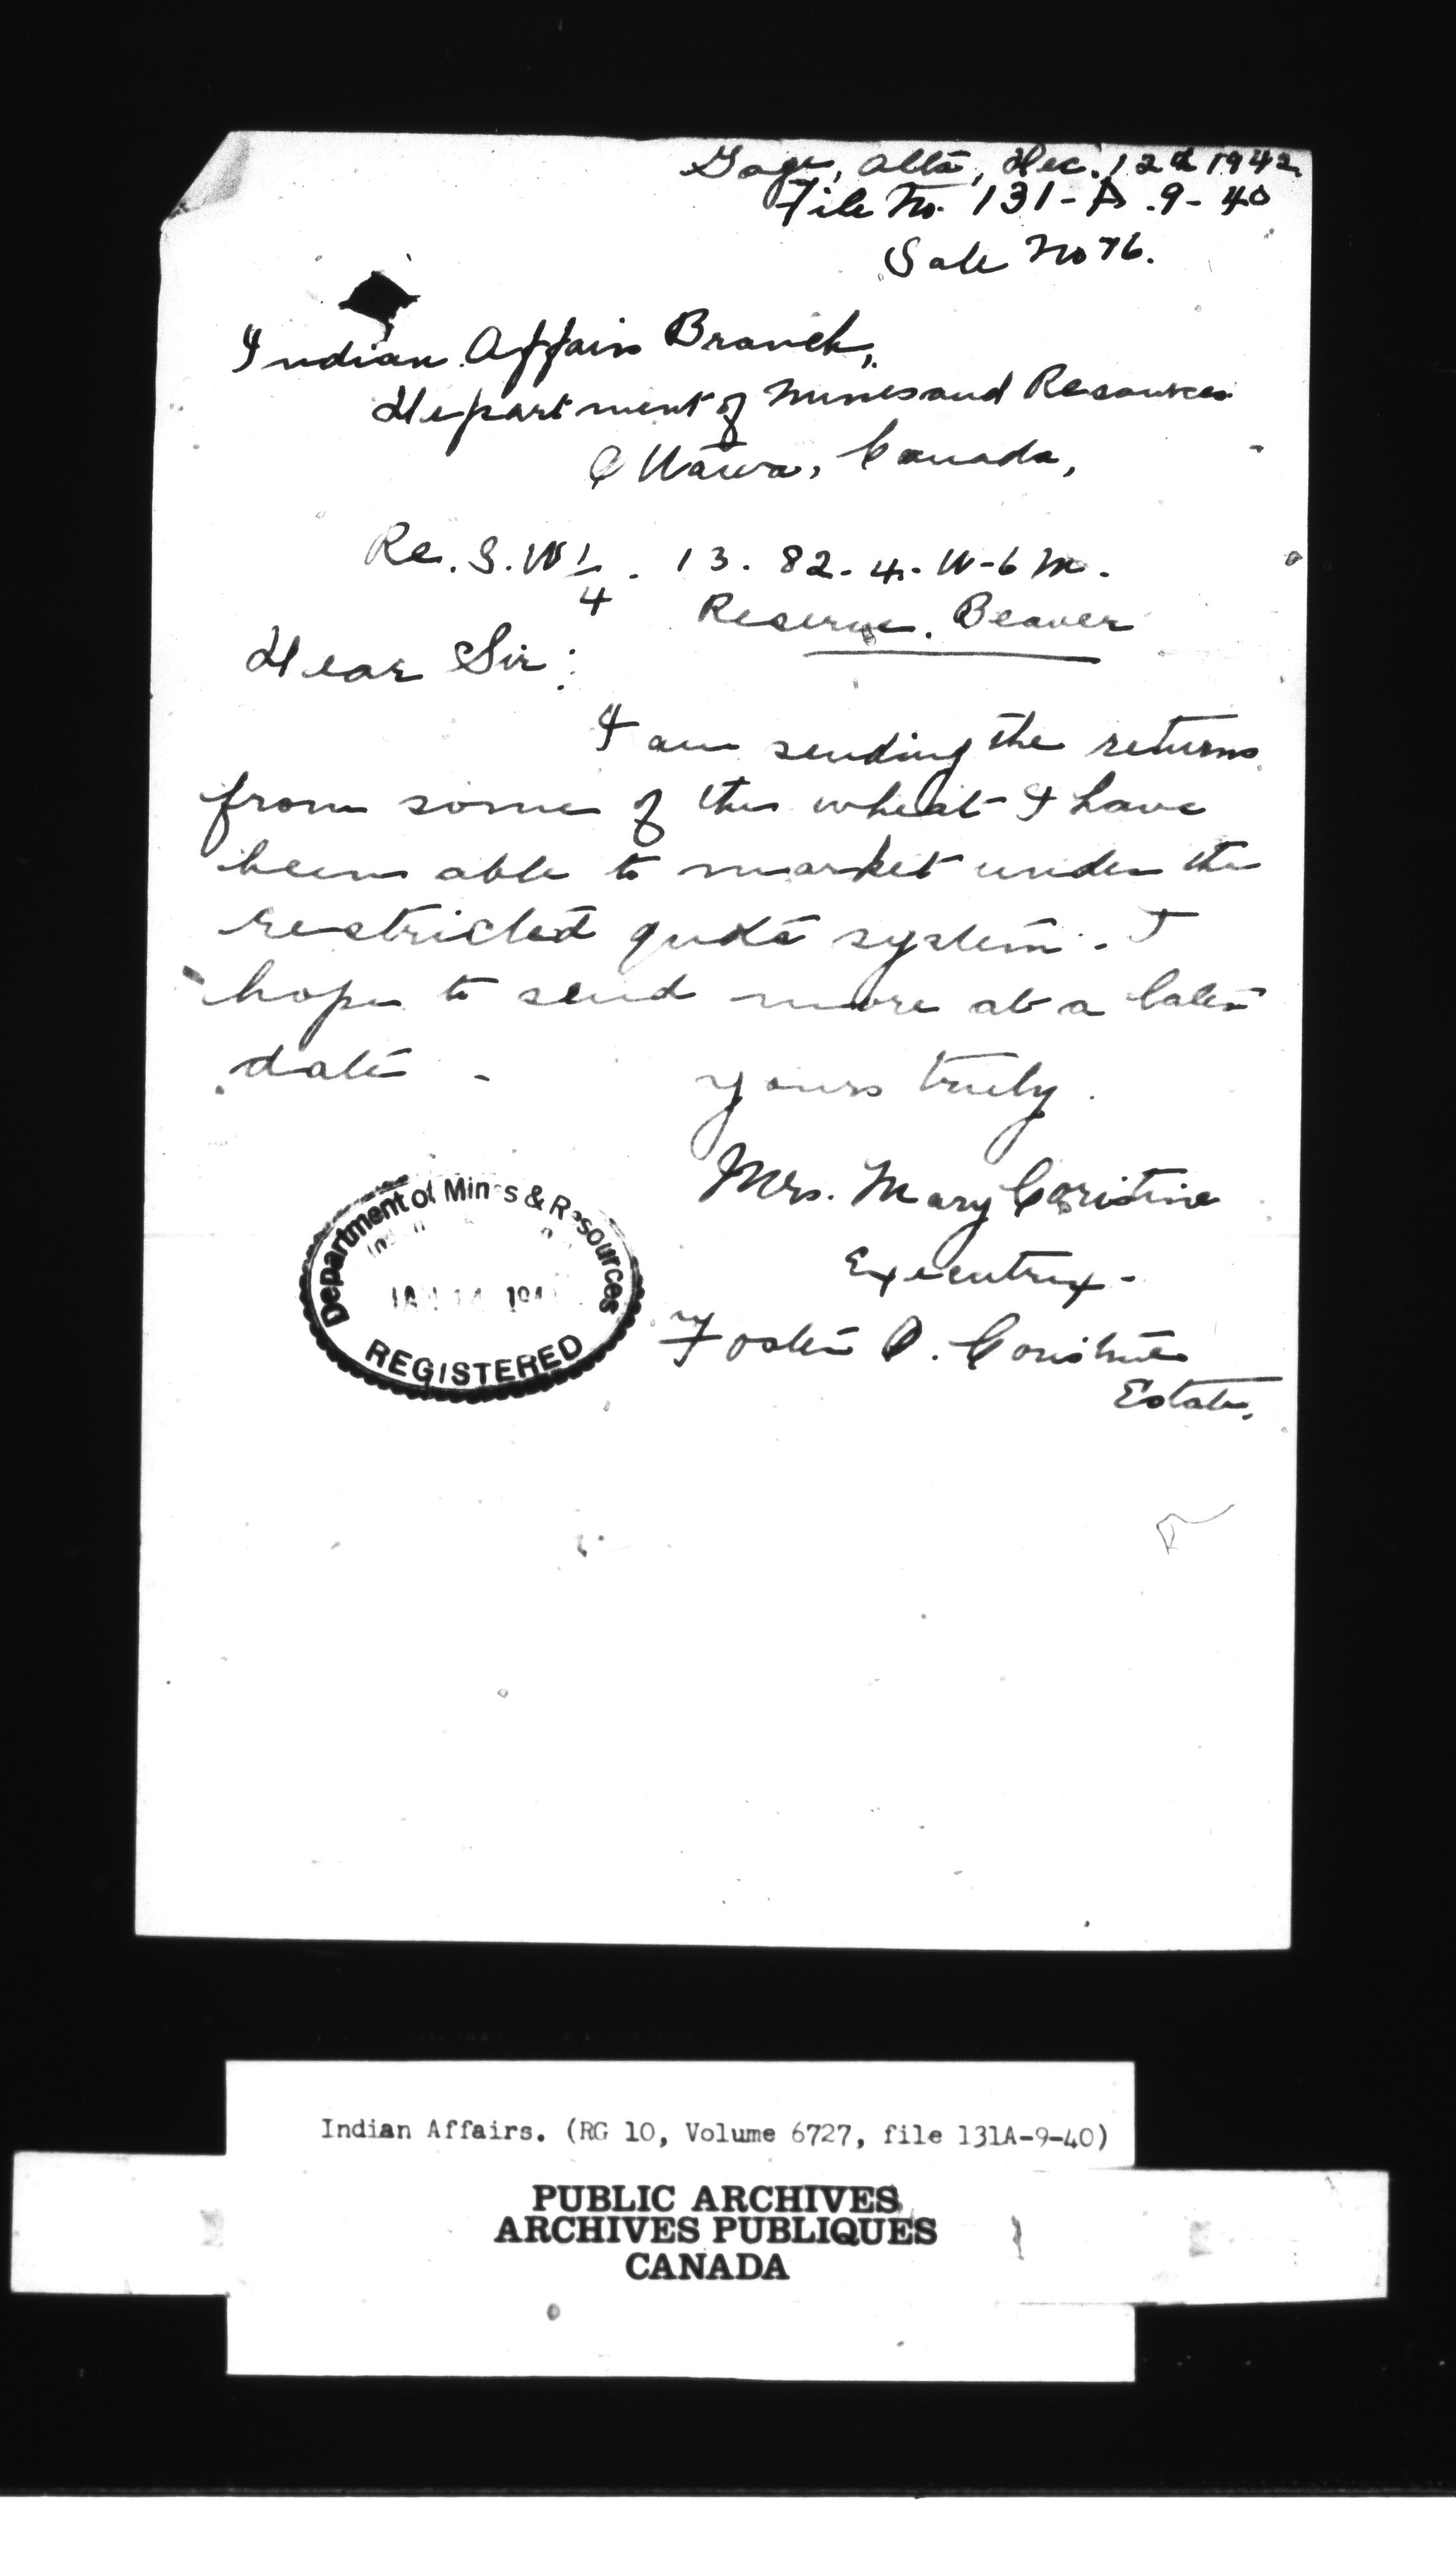 Gage, Alta, Dec. 12th 1942
File No. 131-A.9-40
Sale No 76.
Indian Affairs Branch,
Department of Mines and Resources
Ottawa, Canada,
Re. S.W 1/4 . 13. 82-4-W-6 M.
Reserve. Beaver
Dear Sir:
I am sending the returns
from some of the wheat I have
been able to market under the
restricted quota system. I
hope to send more at a later
date.
yours truly.
Mrs. Mary Coristine
Executrix-
Foster O. Coristine
Estate.
Department of Mines & Resources
JAN 14 194
REGISTERED
Indian Affairs. (RG 10, Volume 6727, file 131A-9-40)
PUBLIC ARCHIVES
ARCHIVES PUBLIQUES
CANADA